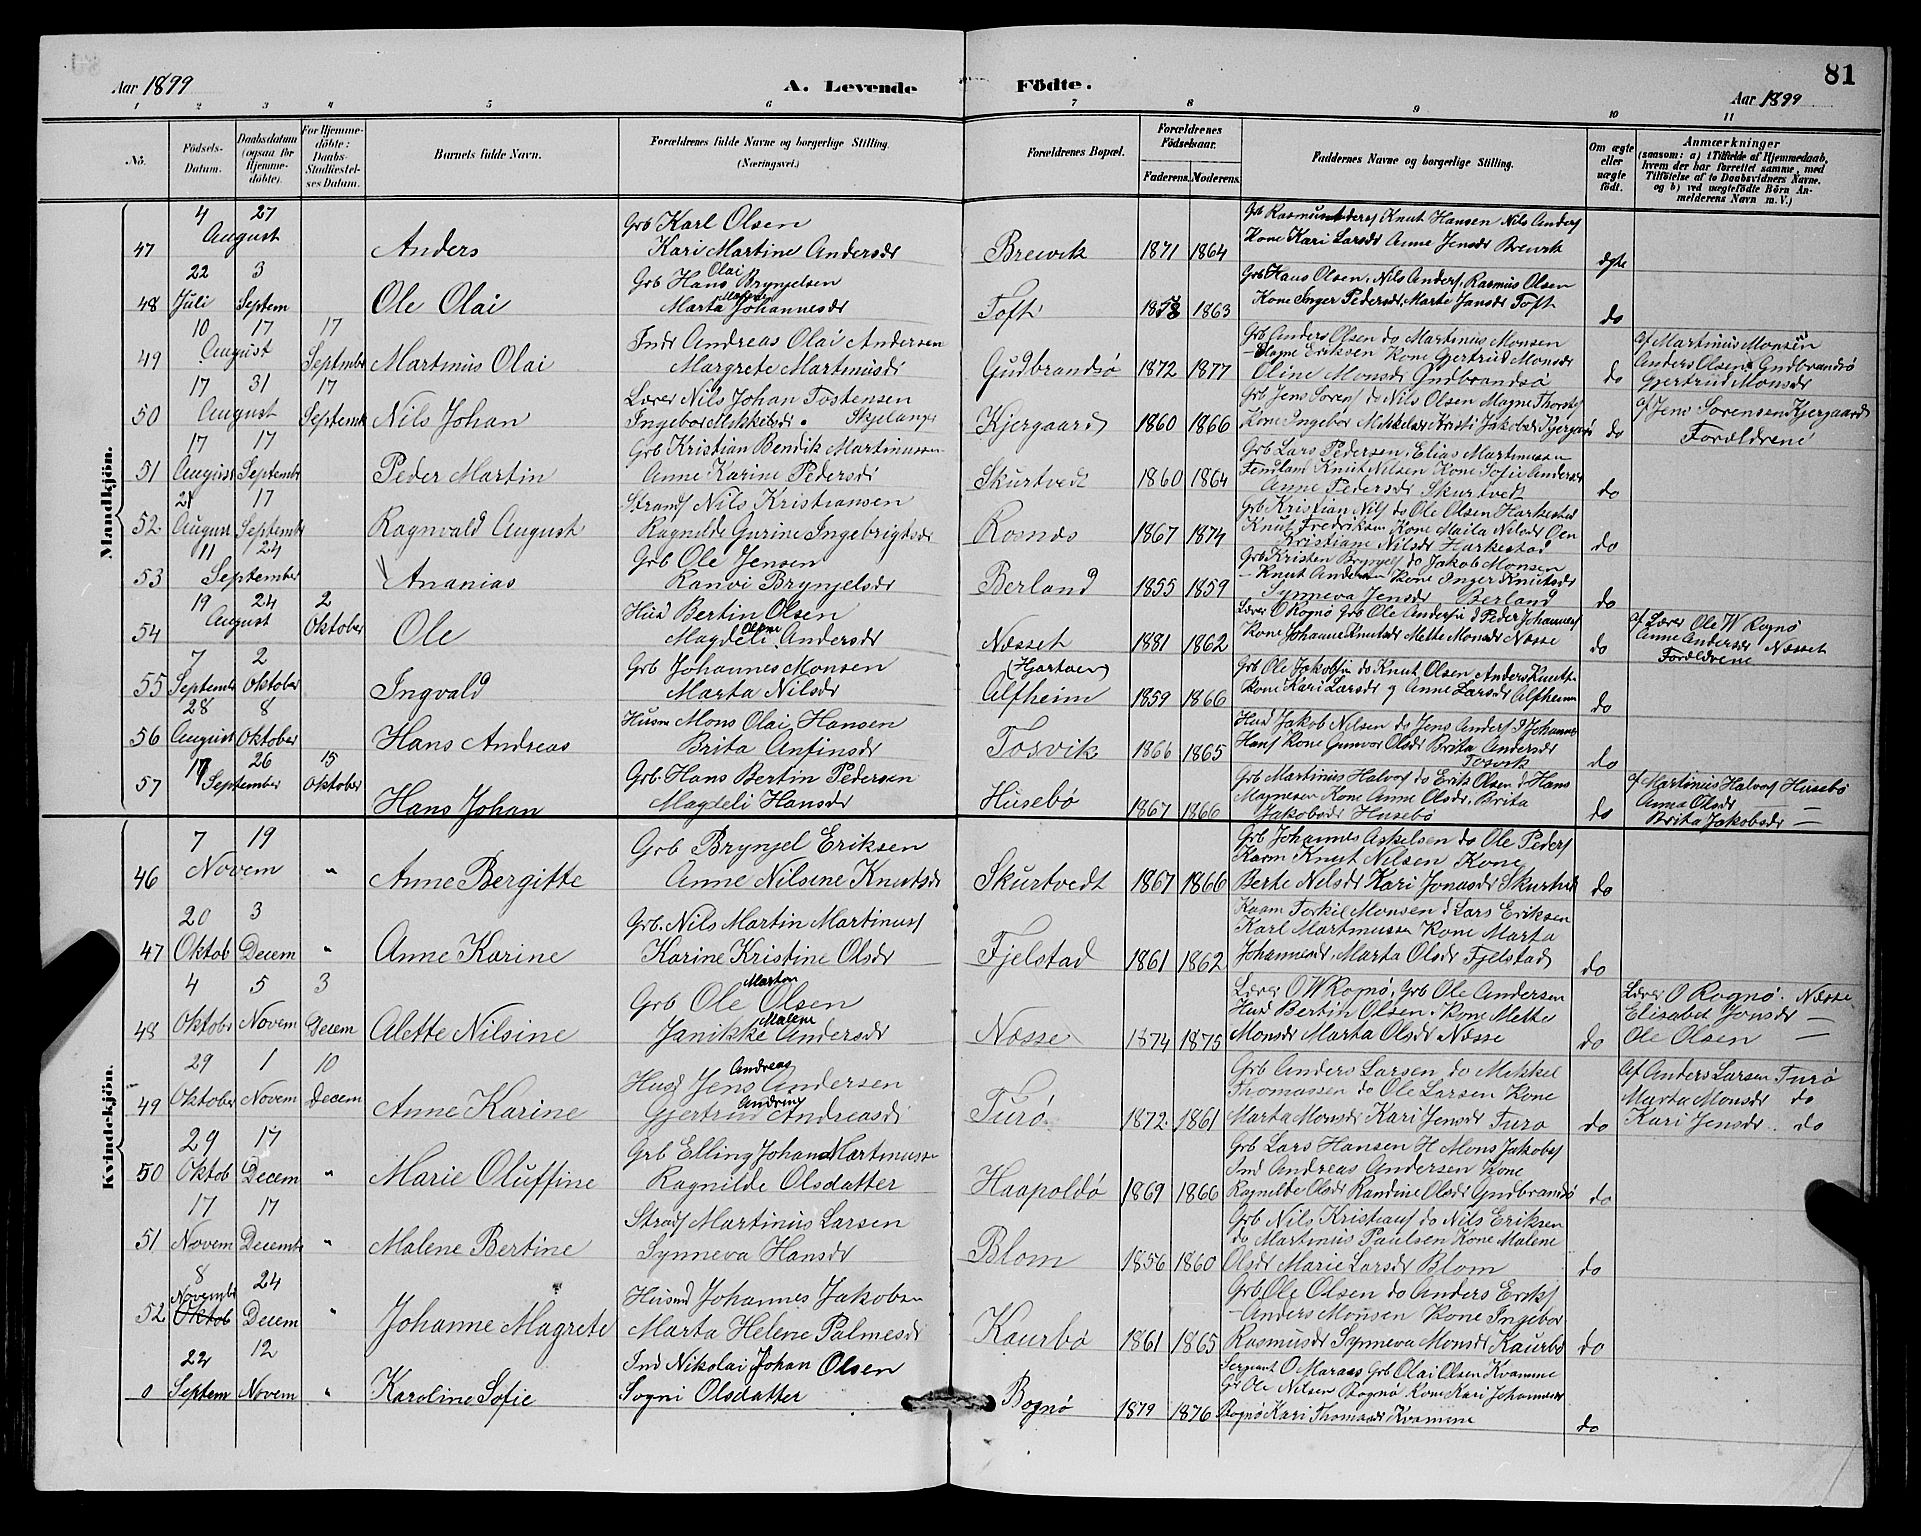 Aar 1899
A. Levende Födte.
81
Aar 1899
1 2 3 4 5 6 7 8 9 10 11
No.
Födsels-Datum.
Daabsdatum (ogsaa for Hjemme-döbte).
For Hjemme-döbte: Daabs-Stadfæstel-ses Datum.
Barnets fulde Navn.
Forældrenes fulde Navne og borgerlige Stilling. (Næringsvei.)
Forældrenes Bopæl.
Forældrenes Födselsaar.
Faderens. Moderens.
Faddernes Navne og borgerlige Stilling.
Om ægte eller uægte födt.
Anmærkninger
(saasom: a) i Tilfælde af Hjemmedaab, hvem der har forrettet samme, med Tilföielse af to Daabsvidners Navne, og b) ved uægtefödte Börn An-melderens Navn m. V.)
Mandkjön.
47 4 August 27 Anders
Grb Karl Olsen
Kari Martine Andersdr
Brewik 1871 1864
Knut Hansen Nils Anders
Kone Kari Larsdr Anne Jensdr Brewik
ægte
48 22 Juli 3 Septem Ole Olai
Grb Hans Olai Brynjelsen
Marta Johannesdr
Toft 1863
Grb Hans Olsen, Nils Anders, Rasmus Olsen
Kone Inger Pedersdr, Marte Jansdr Toft
do
49 10 August 17 17 Septembr Martinus Olai
Indr Andreas Olai Andersen
Margrete Martinusdr
Gudbrandsø 1872 1877
Grb Anders Olsen do Martinus Monsen
Eriksen Kone Gjertrud Monsdr
Oline Monsdr Gudbrandsø
do
af Martinus Monsen
Anders Olsen Gudbrandsø
Gjertrud Monsdr
50 17 August 31 17 Septemb Nils Johan
Lærer Nils Johan Tostensen
Ingebor Mekkelsdr. Skjelanger
Kjergaard 1860 1866
Grb Jens Sørens do Nils Olsen Magne Thorsts
Kone Ingebor Mekkelsdr Kristi Jakobsdr Kjergaard
do
af Jens Sørensen Kjergaard
Forældrene
51 17 August 17 Septembr Peder Martin
Grb Kristian Bendik Martinussen
Anne Karine Pedersdr
Skurtvedt 1860 1864
Grb Lars Pedersen, Elias Martinussen
Knut Nilsen Kone Sofie Andersdr
Anne Pedersdr Skurtvedt
do
52 21 August 17 Septembr Ragnvald August
Strands Nils Kristiansen
Ragnilde Gurine Ingebrigtsdr
Rosnes 1867 1874
Grb Kristian Nils do Ole Olsen Harkestad
Knut Fredriksen Kone Maila Nilsdr Oen
Kristiane Nilsdr Harkestad
do
53 11 September 24 Ananias
Grb Ole Jensen
Ranvi Brynjelsdr
Berland 1855 1859
Grb Kristen Brynjels do Jakob Monsen
- Knut Andersen Kone Inger Knutsdr
Synneva Jensdr Berland
do
54 19 August 24 2 Oktober Ole
Husd Bertin Olsen
Magdeli Oline Andersdr
Næsset 1881 1862
Lærer O Rognø Grb Ole Anders do Peder Johannes
Kone Johanne Knutsdr Mette Monsdr Næsse
do
af Lærer Ole W Rognø
Anne Andersdr Næsset
Forældrene
55 7 Septembr 2 Oktober Ingvald
Grb Johannes Monsen
Marta Nilsdr
(Hjartaas)
Alfheim 1859 1866
Grb Ole Jakobsen do Knut Olsen Anders Knuts
Kone Kari Larsdr og Anne Larsdr Alfheim
do
56 28 August 8 Oktober Hans Andreas
Husm Mons Olai Hansen
Brita Anfinsdr
Tosvik 1866 1865
Husd Jakob Nilsen do Jens Anders d Johannes
Hans Kone Gunvor Olsdr Brita Andersdr
Tosvik
do
57 17 September 26 15 Oktober Hans Johan
Grb. Hans Bertin Pedersen
Magdeli Hansdr
Husebö 1867 1866
Grb Martinus Halvors do Erik Olsen d Hans
Magnesen Kone Anne Olsdr, Brita
Jakobsdr Husebø
do
af Martinus Halvors Husebö
Anna Olsdr —
Brita Jakobsdr —
Kvindekjön.
46 7 Novem 19 " Anne Bergitte
Grb Brynjel Eriksen
Anne Nilsine Knutsdr
Skurtvedt 1867 1866
Grb Johannes Askelsen do Ole Peders
Kaarm Knut Nilsen Kone
Berte Nilsdr Kari Jonasdr Skurtvedt
do
47 20 Oktob 3 Decem " Anne Karine
Grb. Nils Martin Martinuss
Karine Kristine Olsdr
Fjelstad 1861 1862
Kaarm Torkil Monsen d Lars Eriksen
Karl Martinussen Kone Marta
Johannesdr, Marta Olsdr Fjelstad
do
48 4 Oktobr 5 Novem 3 Decem Alette Nilsine
Grb Ole Marton Olsen
Janikke Malene Andersdr
Næsse 1874 1875
Lærer O W Rognø, Grb Ole Andersen
Husd Bertin Olsen. Kone Mette
Monsdr Marta Olsdr Næsse
do
Lærer O Rognø. Næsse
Elisabet Jonsdr —
Ole Olsen —
49 29 Oktober 1 Novem 10 Decem Anne Karine
Husd Jens Andreas Andersen
Gjertrud Andrine Andreasdr
Turø 1872 1861
Grb Anders Larsen do Mikkel
Thomassen do Ole Larsen Kone
Marta Monsdr Kari Jensdr Turø
do
af Anders Larsen Turø
Marta Monsdr do
Kari Jensdr. do
50 29 Oktob 17 Decem " Marie Oluffine
Grb Elling Johan Martinussen
Ragnilde Olsdatter
Haapoldö 1869 1866
Grb Lars Hansen H Mons Jakobs
Ind Andreas Andersen Kone
Ragnilde Olsdr Randine Olsdr Gudbrandsø
do
51 17 Novem 17 Decembr " Malene Bertine
Strads Martinus Larsen
Synneva Hansdr
Blom 1856 1860
Grb Nils Kristians do Nils Eriksen
do Martinus Paulsen Kone Malene
Olsdr Marie Larsdr Blom
do
52 8 Novembr Oktob 24 Decem " Johanne Magrete
Husmd Johannes Jakobsen
Marta Helene Palmesdr
Kaurbø 1861 1865
Grb Ole Olsen do Anders Eriks
- Anders Monsen Kone Ingebor
Rasmusdr Synneva Monsdr Kaurbø
do
0 22 Septem 12 Novem " Karoline Sofie
Ind Nikolai Johan Olsen
Sogni Olsdatter
Bognø 1879 1876
Sergeant O Maraas Grb Olai Olsen Kvamme
Gr Ole Nilsen Bognø Kone Kari Johannesdr
Bognø Kari Thomasdr Kvamme
do